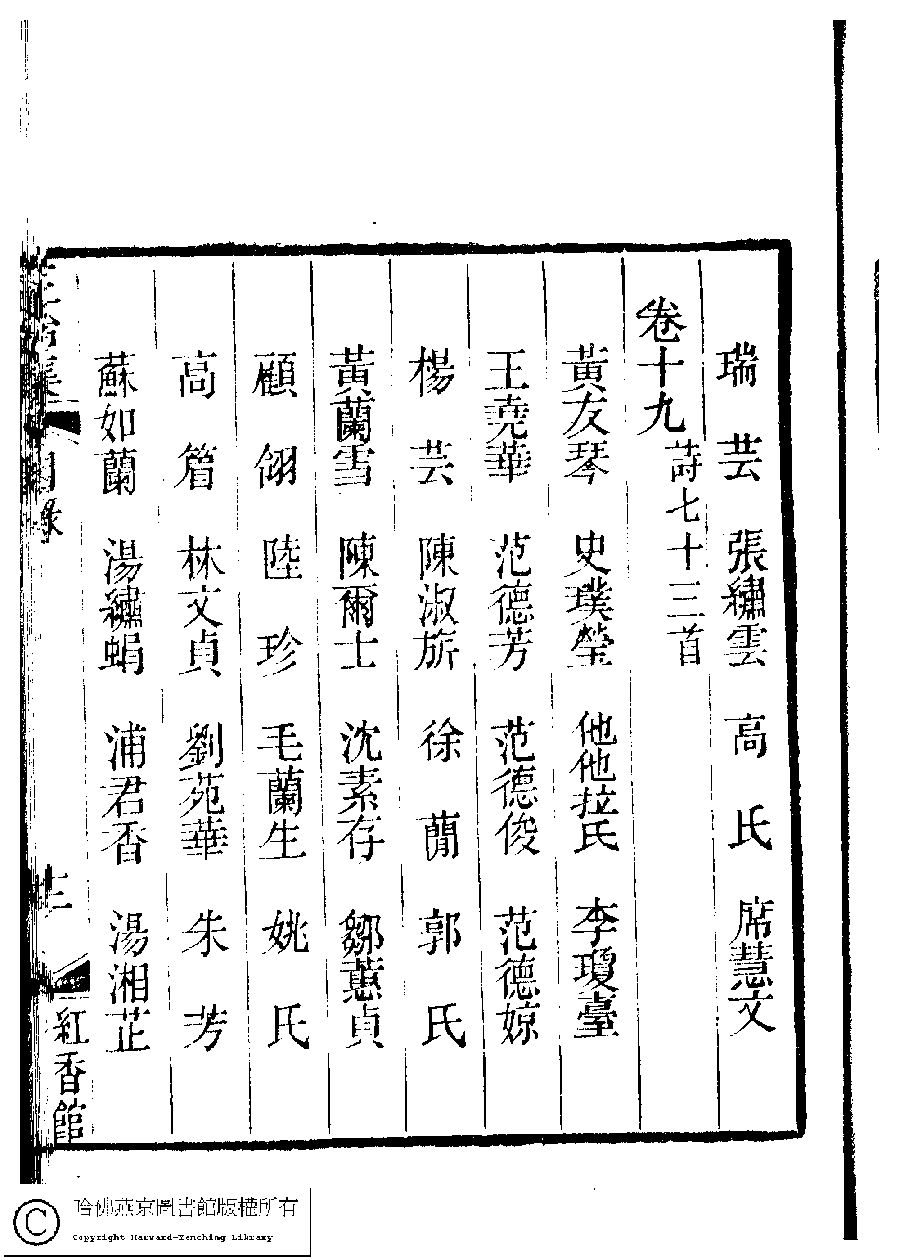 瑞　芸　張繡雲　高　氏　席慧文
卷十九　詩七十三首
黃友琴　史璞瑩　他他拉氏　李瓊臺
王堯華　范德芳　范德俊　范德婛
楊　芸　陳淑旂　徐　蕑　郭　氏
黃蘭雪　陳爾士　沈素存　鄒蕙貞
顧　翎　陸　珍　毛蘭生　姚　氏
高　篃　林文貞　劉苑華　朱　芳
蘇如蘭　湯繡蜎　浦君香　湯湘芷
正始集　目錄　紅香館
哈佛燕京圖書館版權所有
Copyright Harvard-Yenching Library